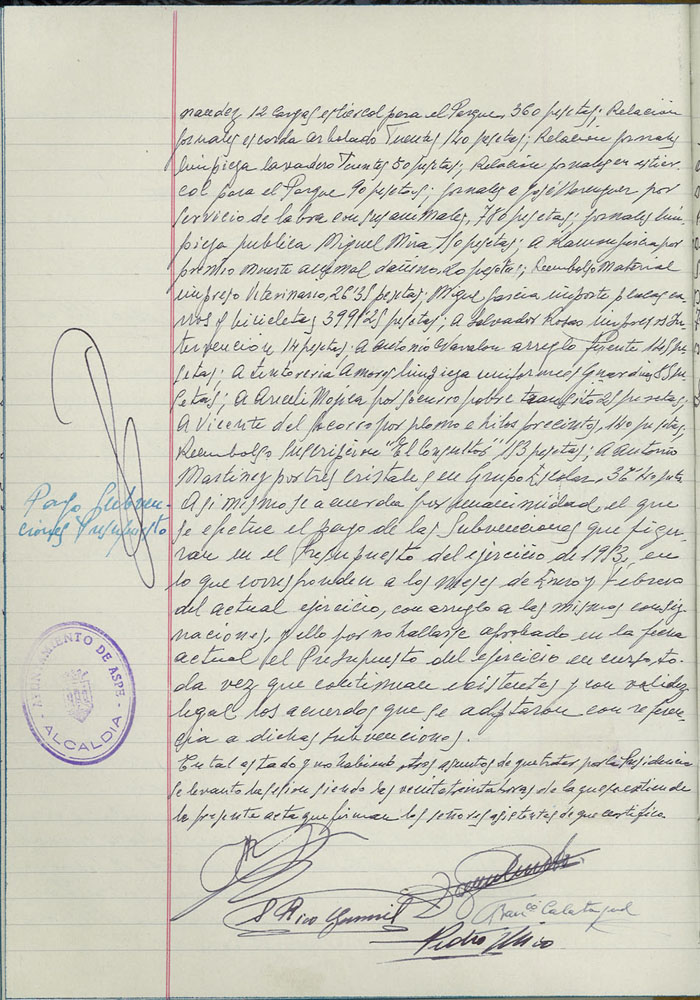 nandez 12 cargas estiercol para el Parque, 360 pesetas; Relacion
jornales escarda arbolado Fuentes 120 pesetas; Relacion jornales
limpieza lavadero Fuentes 50 pesetas; Relacion jornales en estier-
col para el Parque 90 pesetas; jornales a José Berenguer por
servicio de labra con sus animales, 780 pesetas; jornales lim-
pieza publica Miguel Mira 750 pesetas; A por
premio muerte animal dañino, 20 pesetas; Reembolso Material
impreso Veterinario, 26'35 pesetas; Miguel Garcia importe placas ca-
rros y bicicletas 399'25 pesetas; A Salvador Rosas impresos In-
tervencion, 14 pesetas; A Antonio Navalon arreglo fuente 145 pe-
setas; A tintoreria Amoros limpieza uniformes guardias, 55 pe-
setas; A Araceli Mojica por socorro pobre transito 25 pesetas;
A Vicente del Socorro por plomo e hilos precintos, 140 pesetas;
Reembolso suscripcion "El Consultor" 153 pesetas; A Antonio
Martinez por tres cristales en Grupo Escolar, 36'40 pstas.
Asi mismo se acuerda por unanimidad, el que
se efectue el pago de las Subvenciones que figu-
ran en el Presupuesto del ejercicio de 1953, en
lo que corresponden a los meses de Enero y Febrero
del actual ejercicio, con arreglo a las mismas consig-
naciones, y ello por no hallarse aprobado en la fecha
actual el Presupuesto del ejercicio en curso, to-
da vez que continuan existentes y con validez
legal los acuerdos que se adoptaron con referen-
cia a dichas subvenciones.
En tal estado y no habiendo otros asuntos de que tratar por la Presidencia
se levanto la sesion siendo las veinte treinta horas de la que se extiende
la presente acta que firman los señores asistentes de que certifico.
Pago Subven-
ciones Presupuesto
AYUNTAMIENTO DE ASPE
- ALCALDIA -
Rico
Franco Calatayud
Pedro Mico